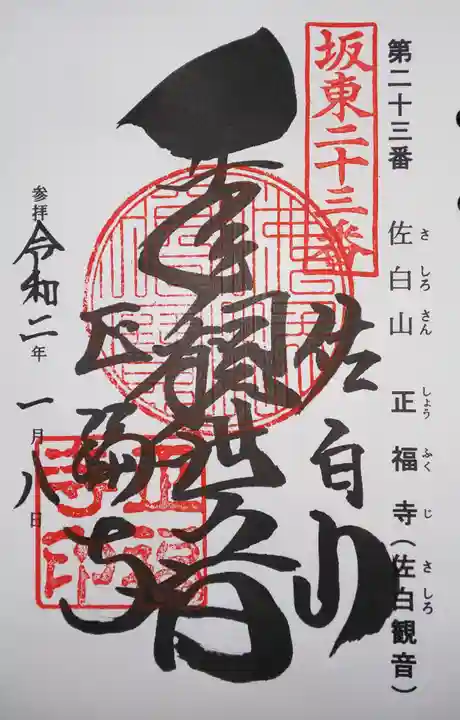 第二十三番 佐白山 正福寺(佐白観音)
さ しろ さん しょう ふく じ さ しろ
坂東二十三番
佐白山
千手観世音
正福寺
正福寺印
参拝 令和二年一月八日